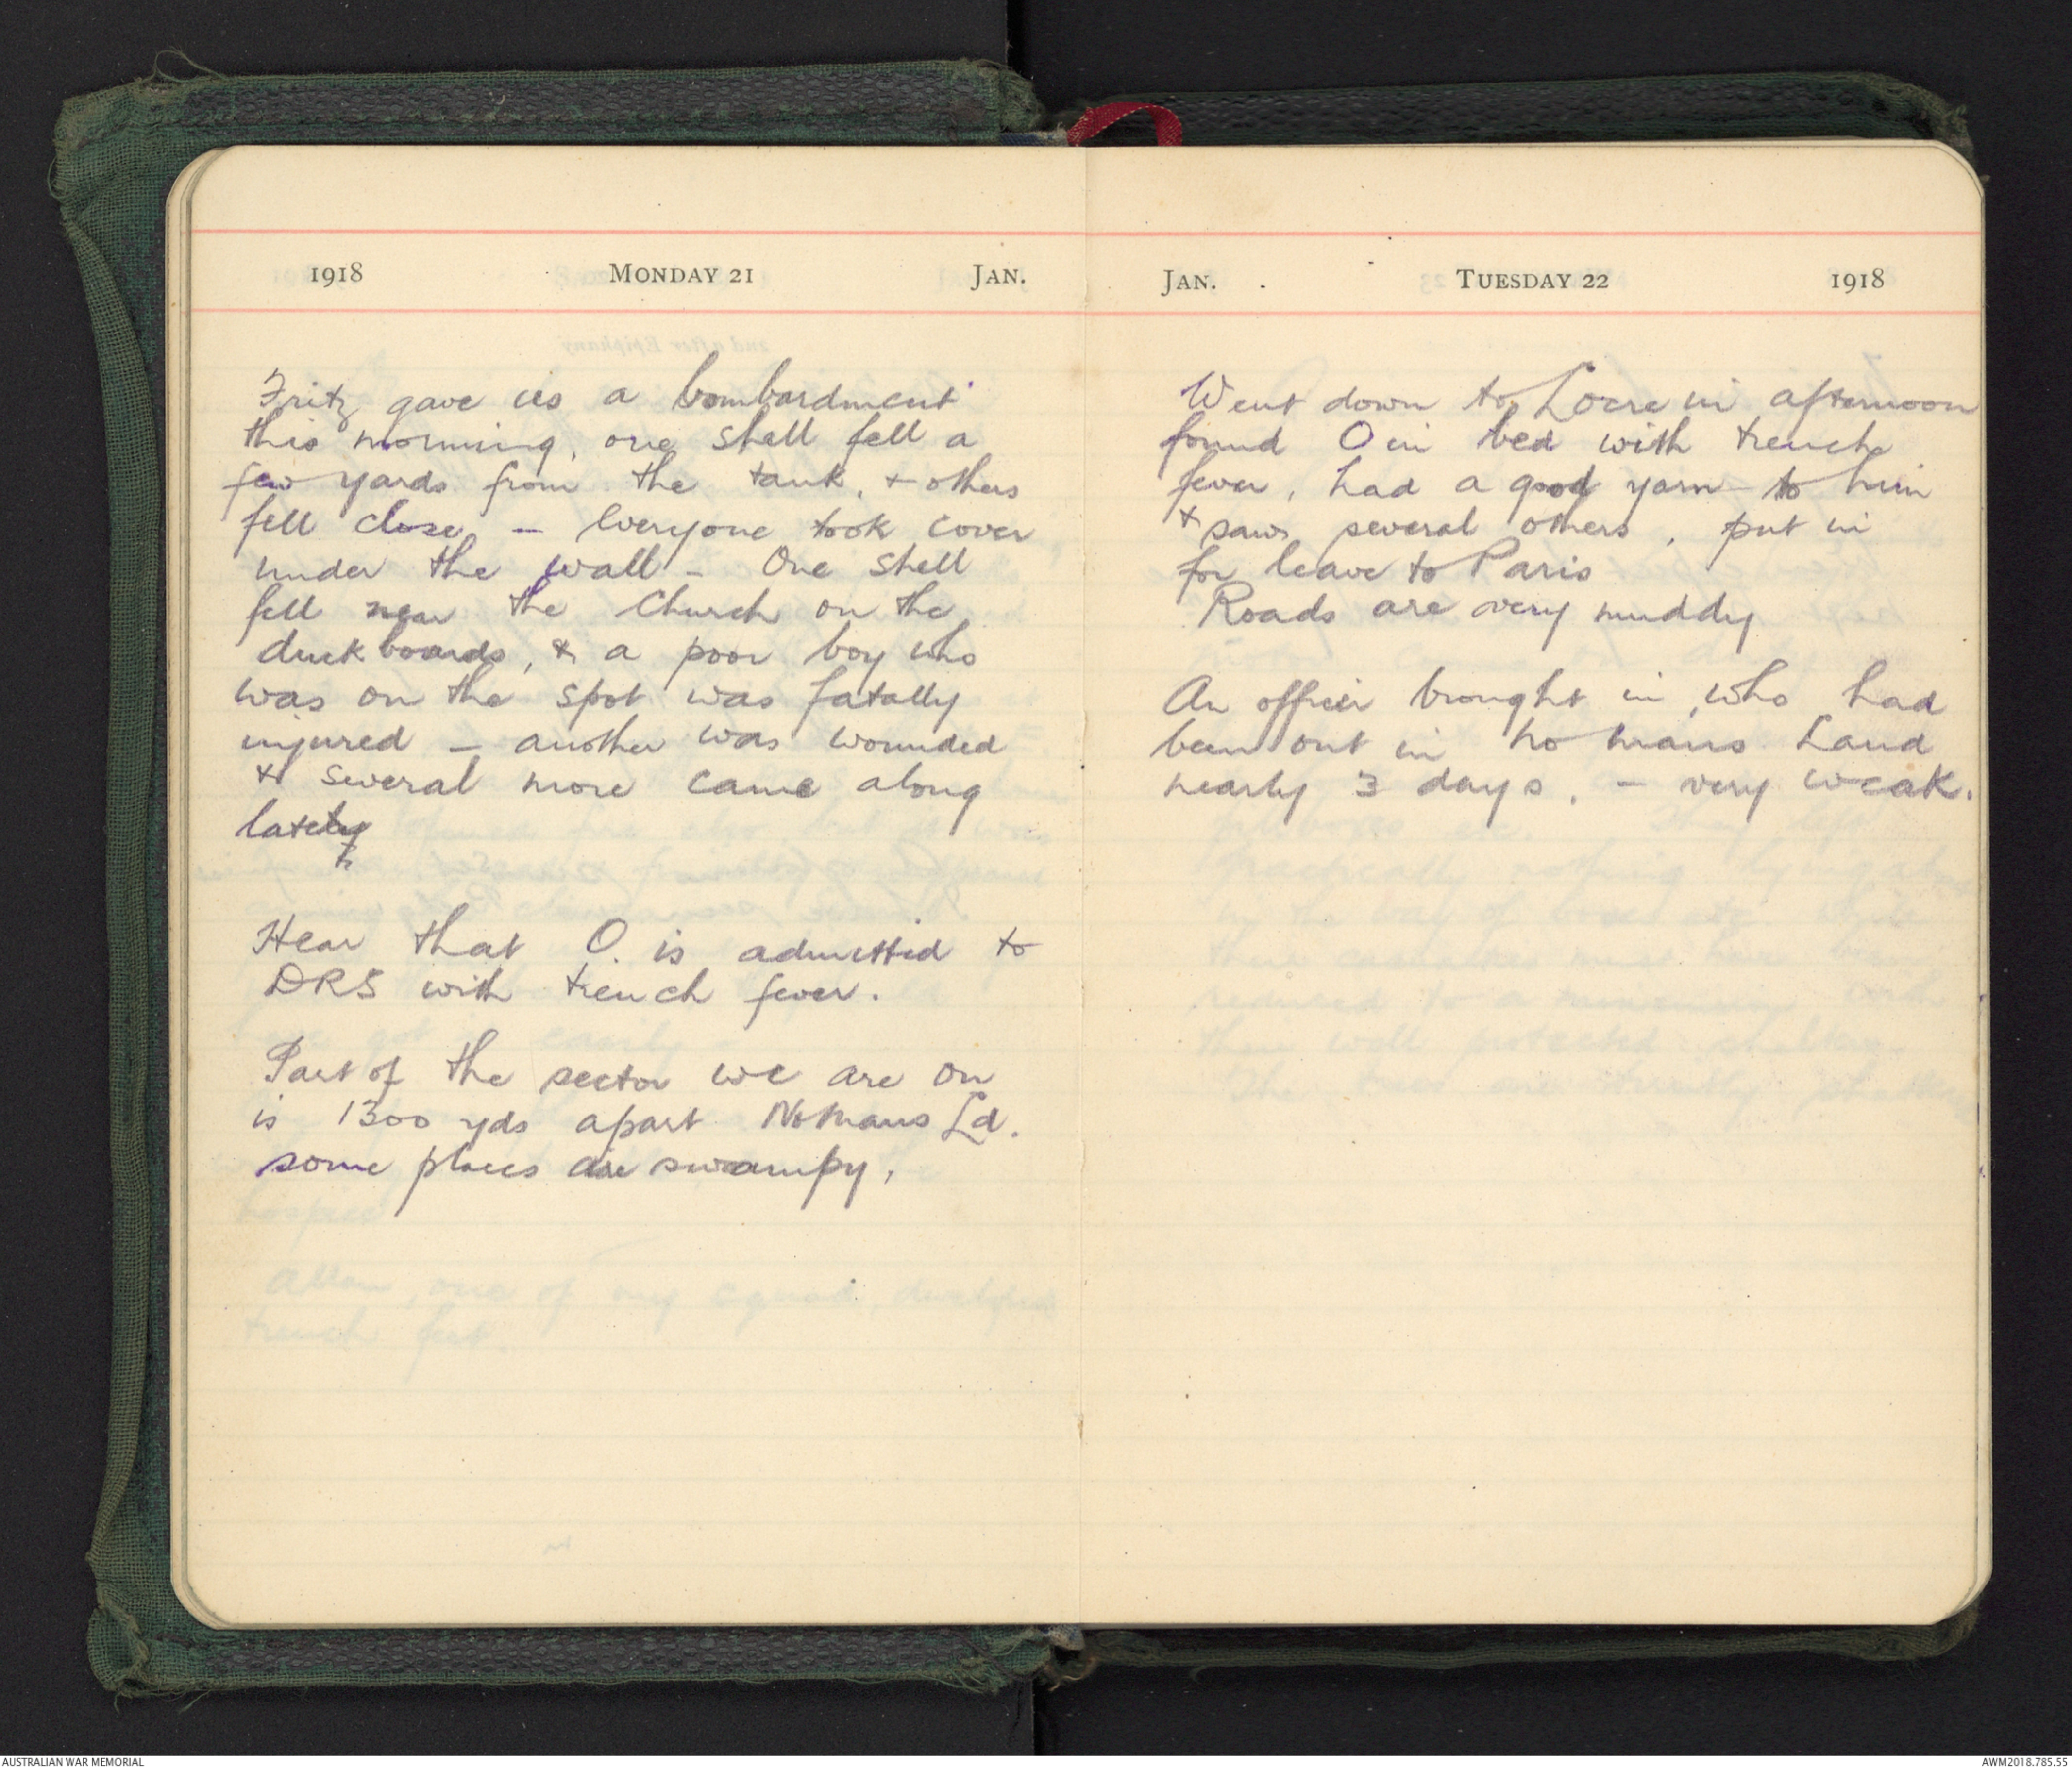 1918 MONDAY 21 JAN.
Fritz gave us a bombardment
this morning, one shell fell a
few yards from the tank, + others
fell close - Everyone took cover
under the wall - One shell
fell near the Church on the
duckboards, & a poor boy who
was on the spot was fatally
injured - another was wounded
& several more came along
lately
Hear that O. is admitted to
DRS with trench fever.
Part of the sector we are on
is 1300 yds apart Nomans Ld.
some places are swampy,
JAN. TUESDAY 22 1918
Went down to Locre in afternoon
found O in bed with trench
fever, had a good yarn to him
& saw several others, put in
for leave to Paris
Roads are very muddy
An officer brought in, who had
been out in no mans Land
nearly 3 days, - very weak.
AUSTRALIAN WAR MEMORIAL
AWM2018.785.55